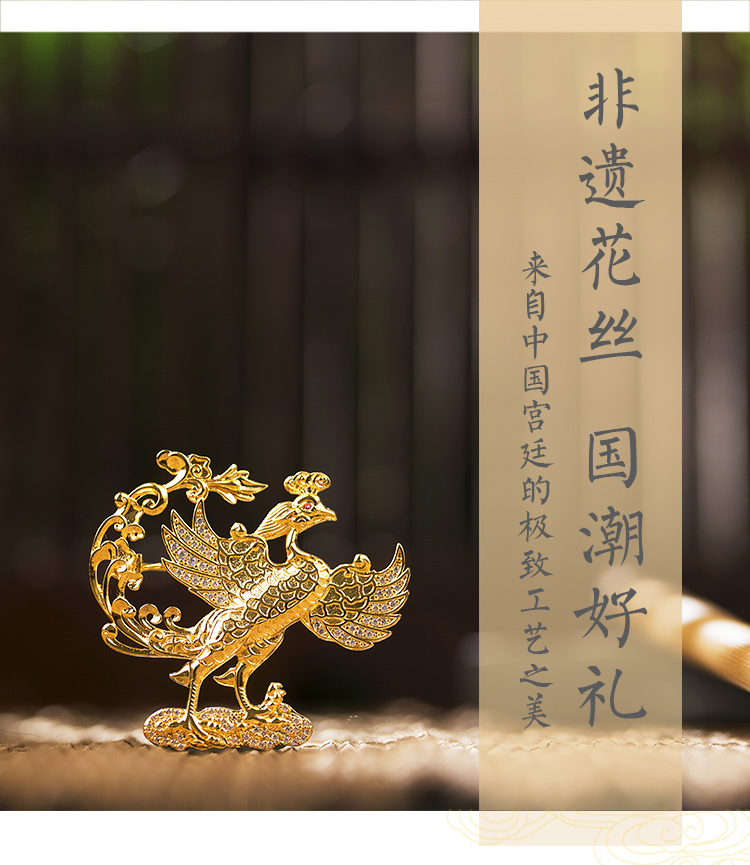 非遗花丝 国潮好礼
来自中国宫廷的极致工艺之美